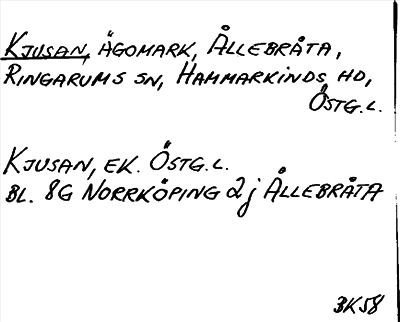 KJUSAN, ÄGOMARK, ÅLLEBRÅTA,
RINGARUMS SN, HAMMARKINDS HD,
ÖSTG.L.
KJUSAN, EK. ÖSTG.L.
BL. 8G NORRKÖPING 2j ÅLLEBRÅTA
3K58